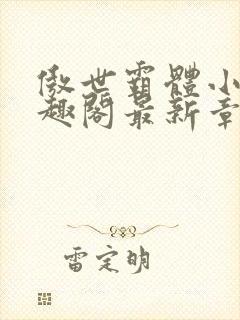 傲世霸體小
趣閣最新章
雷定明